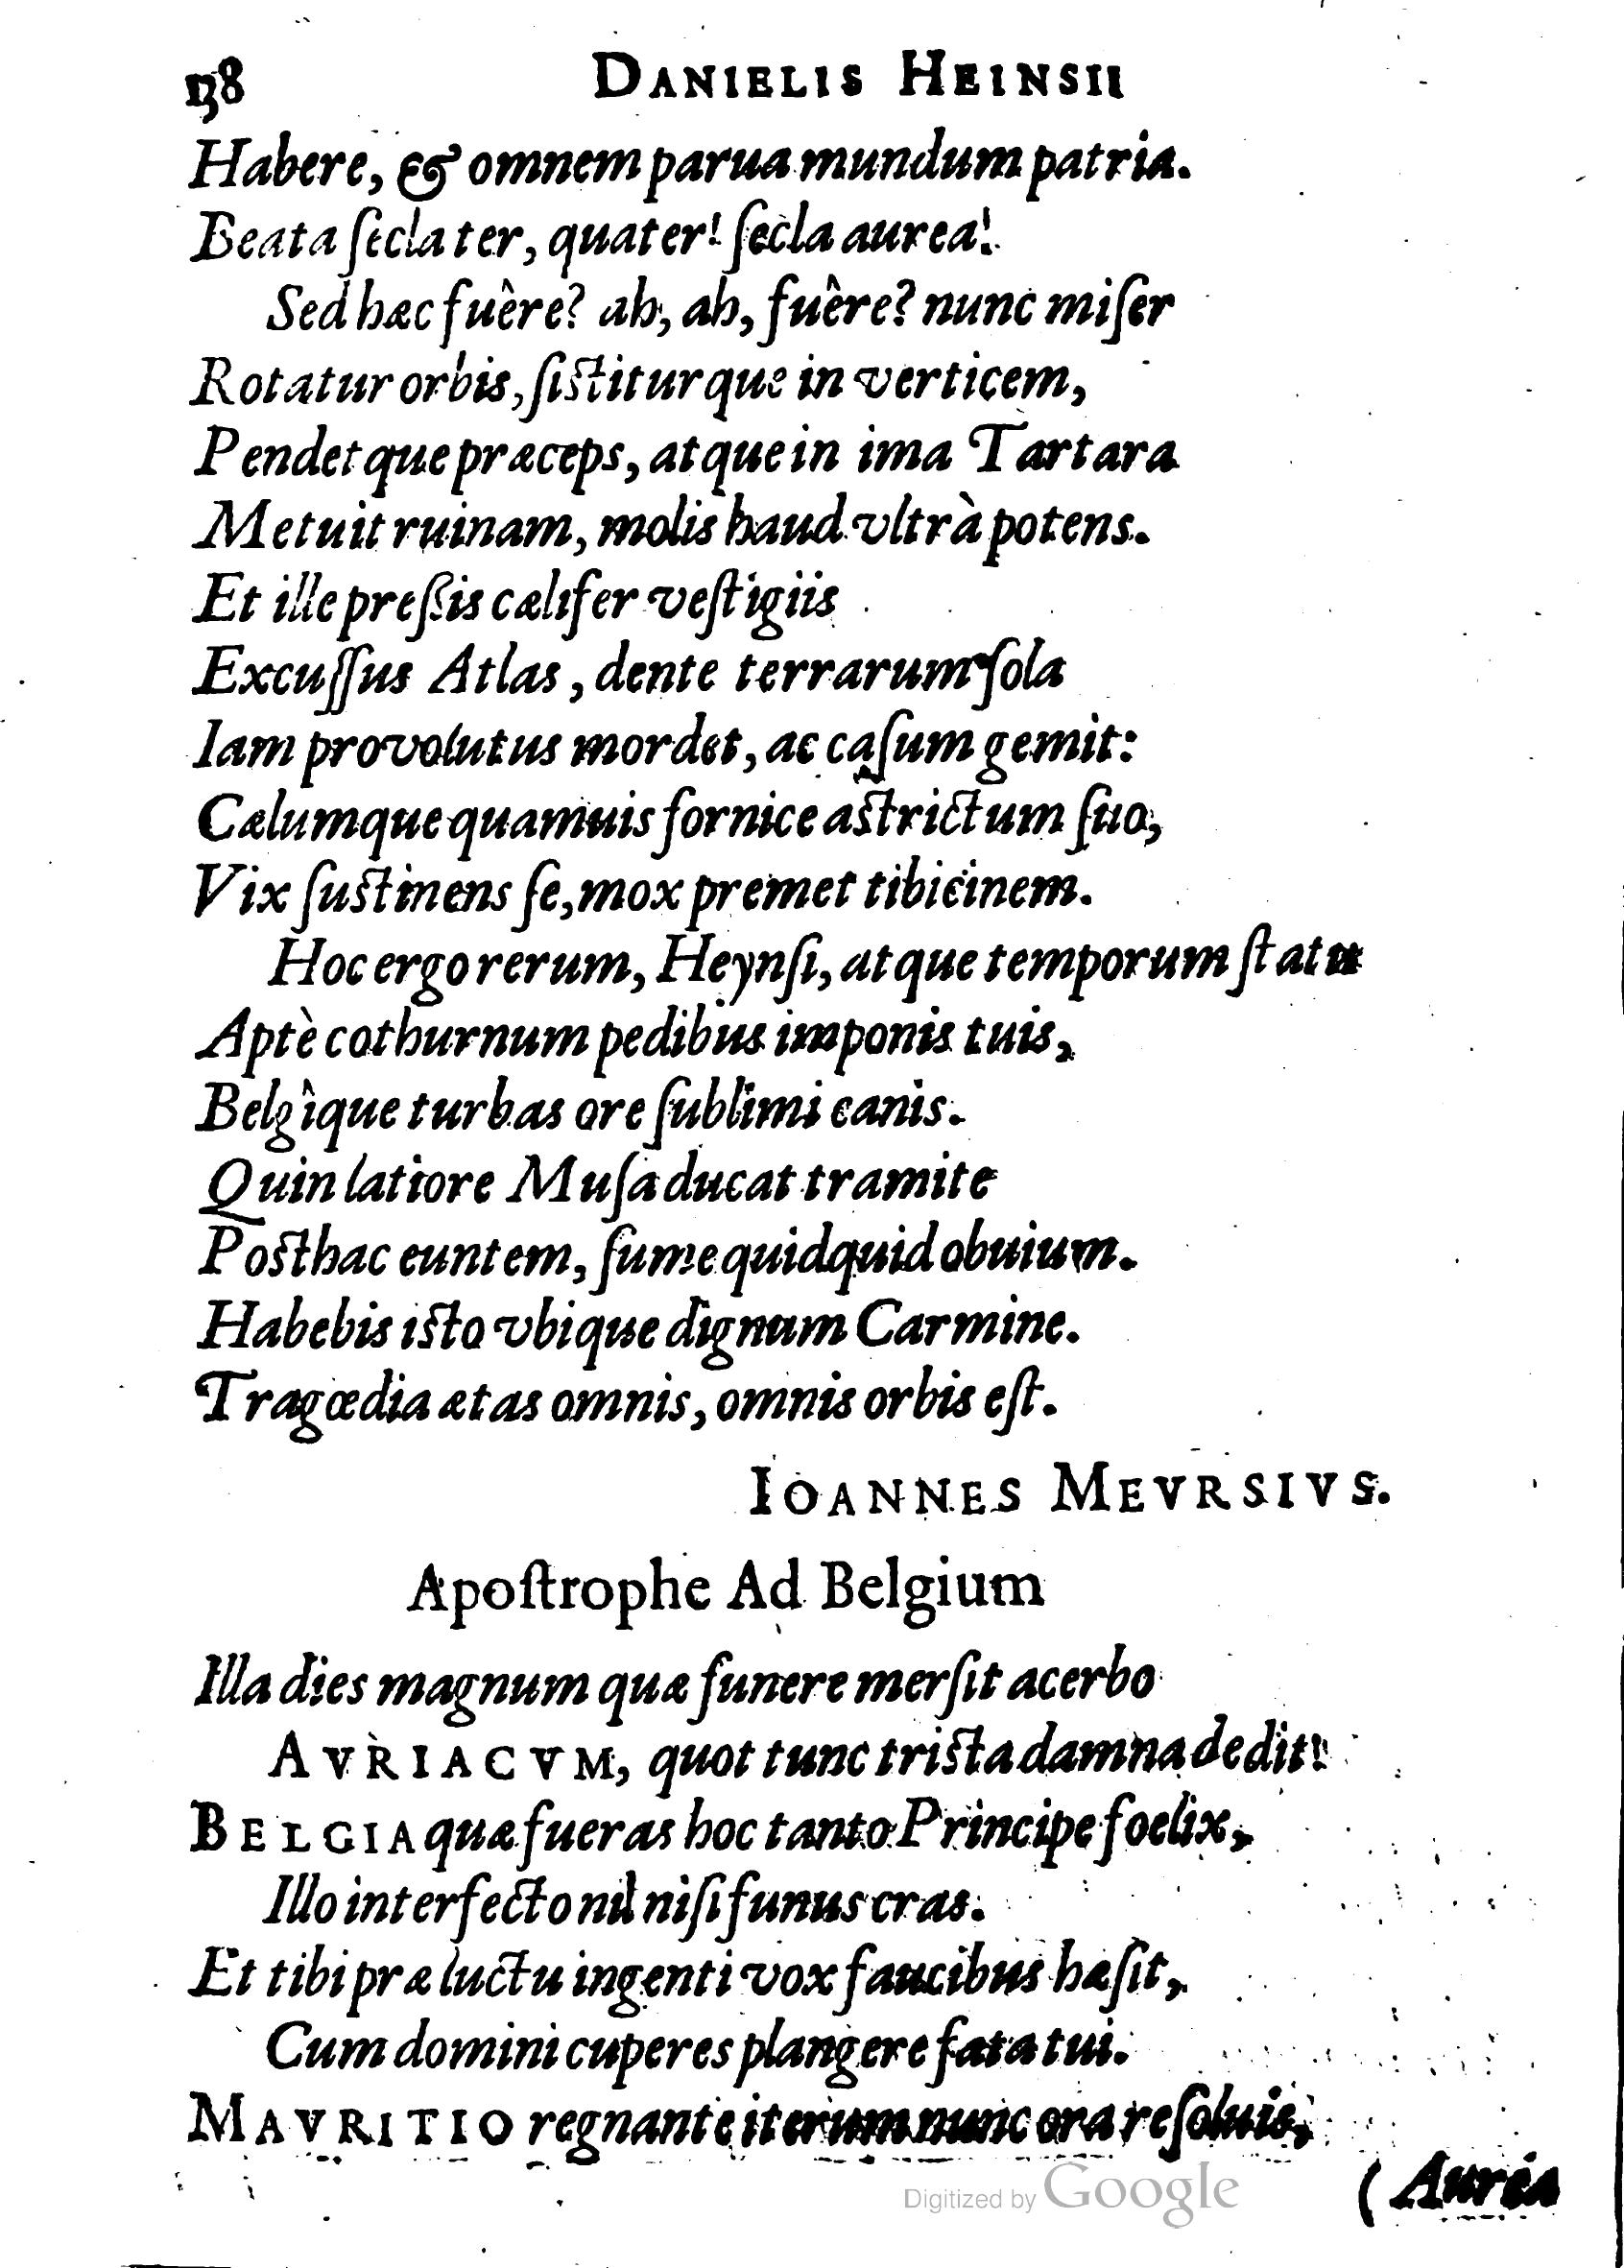 138 DANIELIS HEINSII
Habere, & omnem parua mundum patria.
Beata secla ter, quater! secla aurea!
Sed hæc fuêre? ah, ah, fuêre? nunc miser
Rotatur orbis, sistiturque in verticem,
Pendetque præceps, atque in ima Tartara
Metuit ruinam, molis haud vltrà potens.
Et ille preßis cælifer vestigiis
Excussus Atlas, dente terrarum sola
Iam provolutus mordet, ac casum gemit:
Cælumque quamuis fornice astrictum suo,
Vix sustinens se, mox premet tibicinem.
Hoc ergo rerum, Heynsi, atque temporum statu
Aptè cothurnum pedibus imponis tuis,
Belgîque turbas ore sublimi canis.
Quin latiore Musa ducat tramite
Posthac euntem, sume quidquid obuium.
Habebis isto vbique dignum Carmine.
Tragœdia ætas omnis, omnis orbis est.
IOANNES MEVRSIVS.
Apostrophe Ad Belgium
Illa dies magnum quæ funere mersit acerbo
AVRIACVM, quot tunc trista damna dedit!
BELGIA quæ fueras hoc tanto Principe foelix,
Illo interfecto nil nisi funus eras.
Et tibi præ luctu ingenti vox faucibus hæsit,
Cum domini cuperes plangere fata tui.
MAVRITIO regnante iterum nunc ora resoluis,
(Aurea
Digitized by Google